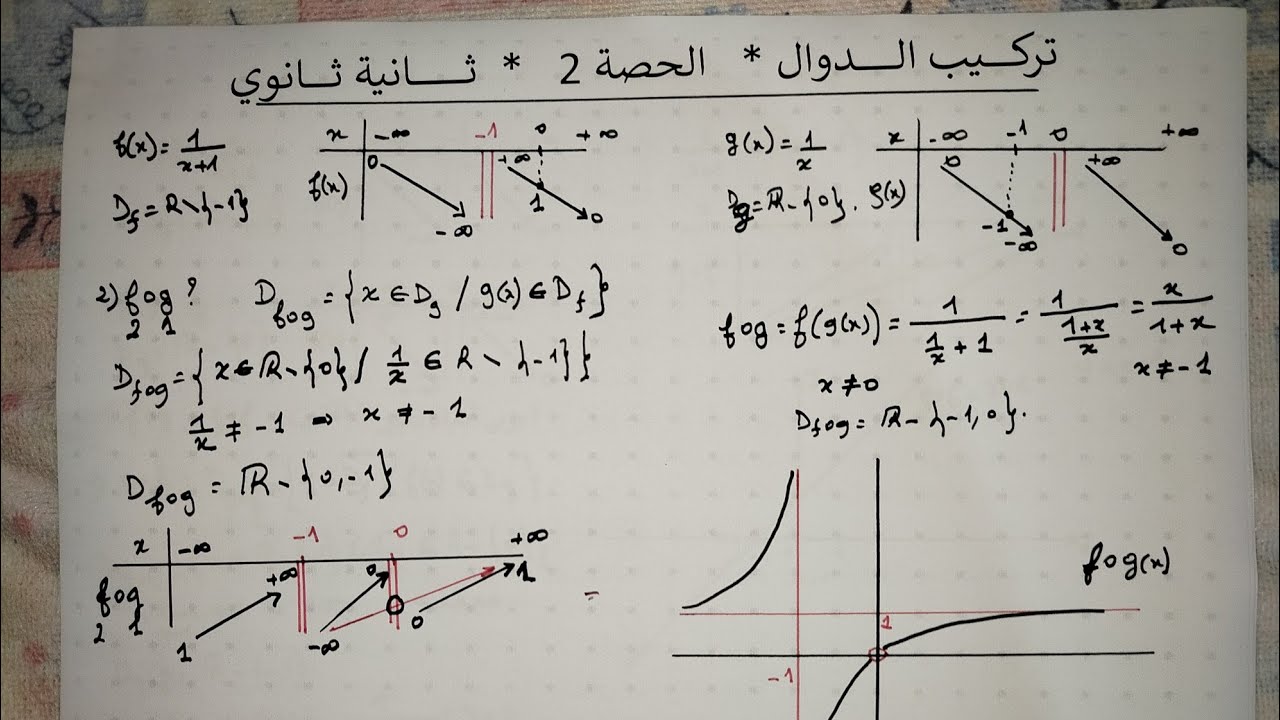 تركيب الدوال * الحصة 2 * ثانية ثانوي
f(x) = 1/(x+1)
x -∞ -1 0 +∞
f(x) 0 -∞ +∞ 1 0
D_f = R \ {-1}
g(x) = 1/x
x -∞ -1 0 +∞
g(x) 0 -1 -∞ +∞ 0
D_g = R - {0}.
2) fog ? D_fog = {x ∈ D_g / g(x) ∈ D_f}
2 1
D_fog = {x ∈ R - {0} / 1/x ∈ R \ {-1}}
1/x ≠ -1 ⇒ x ≠ -1
D_fog = R - {0, -1}
fog = f(g(x)) = 1/(1/x + 1) = 1/((1+x)/x) = x/(1+x)
x ≠ 0 x ≠ -1
D_fog = R - {-1, 0}.
x -∞ -1 0 +∞
fog 1 +∞ -∞ 0 0 1
2 1
=
fog(x)
1
-1